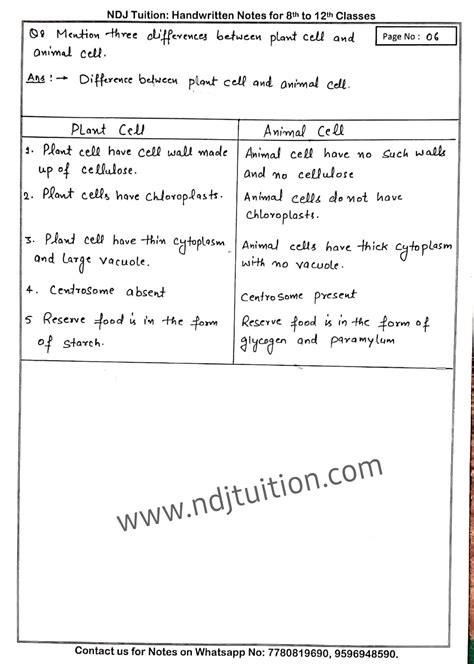 NDJ Tuition: Handwritten Notes for 8th to 12th Classes
Q8 Mention three differences between plant cell and
animal cell.
Page No : 06
Ans :→ Difference between plant cell and animal cell.
Plant Cell
Animal Cell
1. Plant cell have cell wall made
up of cellulose.
Animal cell have no such walls
and no cellulose
2. Plant cells have chloroplasts.
Animal cells do not have
chloroplasts.
3. Plant cell have thin cytoplasm
and large vacuole.
Animal cells have thick cytoplasm
with no vacuole.
4. Centrosome absent
Centrosome present
5 Reserve food is in the form
of starch.
Reserve food is in the form of
glycogen and paramylum
www.ndjtuition.com
Contact us for Notes on Whatsapp No: 7780819690, 9596948590.